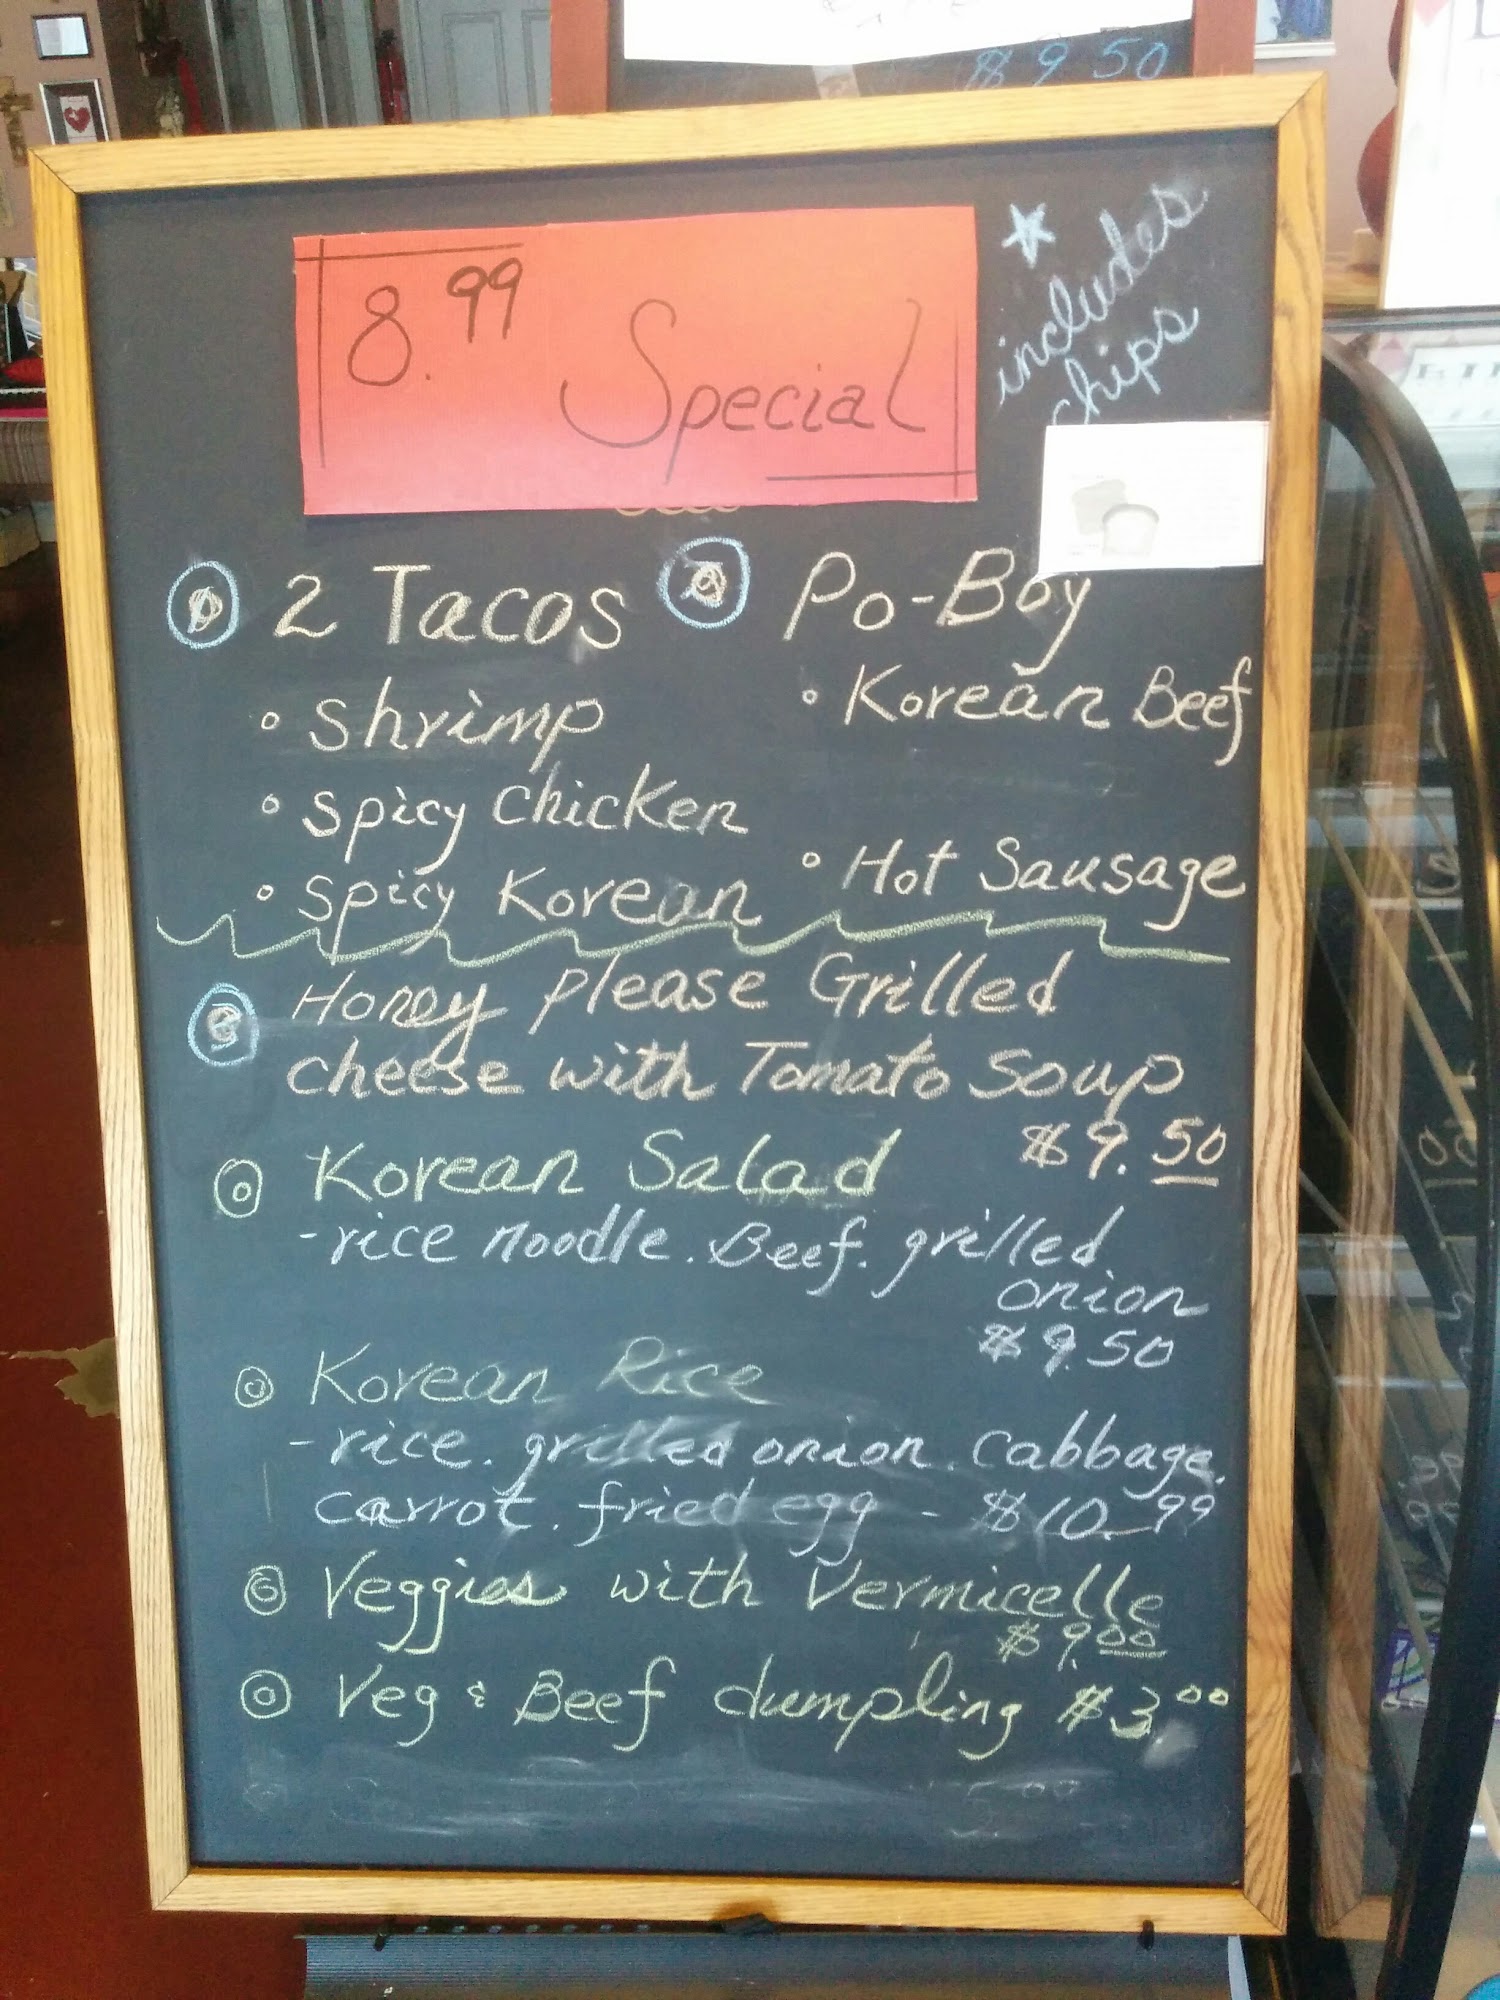 $9.50
8.99 Special
★ includes
chips
2 Tacos
• Shrimp
• Spicy Chicken
• Spicy Korean
Po-Boy
• Korean Beef
• Hot Sausage
Honey please Grilled
cheese with Tomato Soup
$9.50
Korean Salad
-rice noodle. Beef. grilled
onion
$9.50
Korean Rice
-rice. grilled onion. Cabbage.
Carrot. fried egg - $10.99
Veggies with Vermicelle
$9.00
Veg & Beef dumpling $3.00